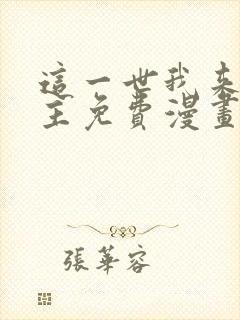 這一世我來
主免費漫畫
張華容